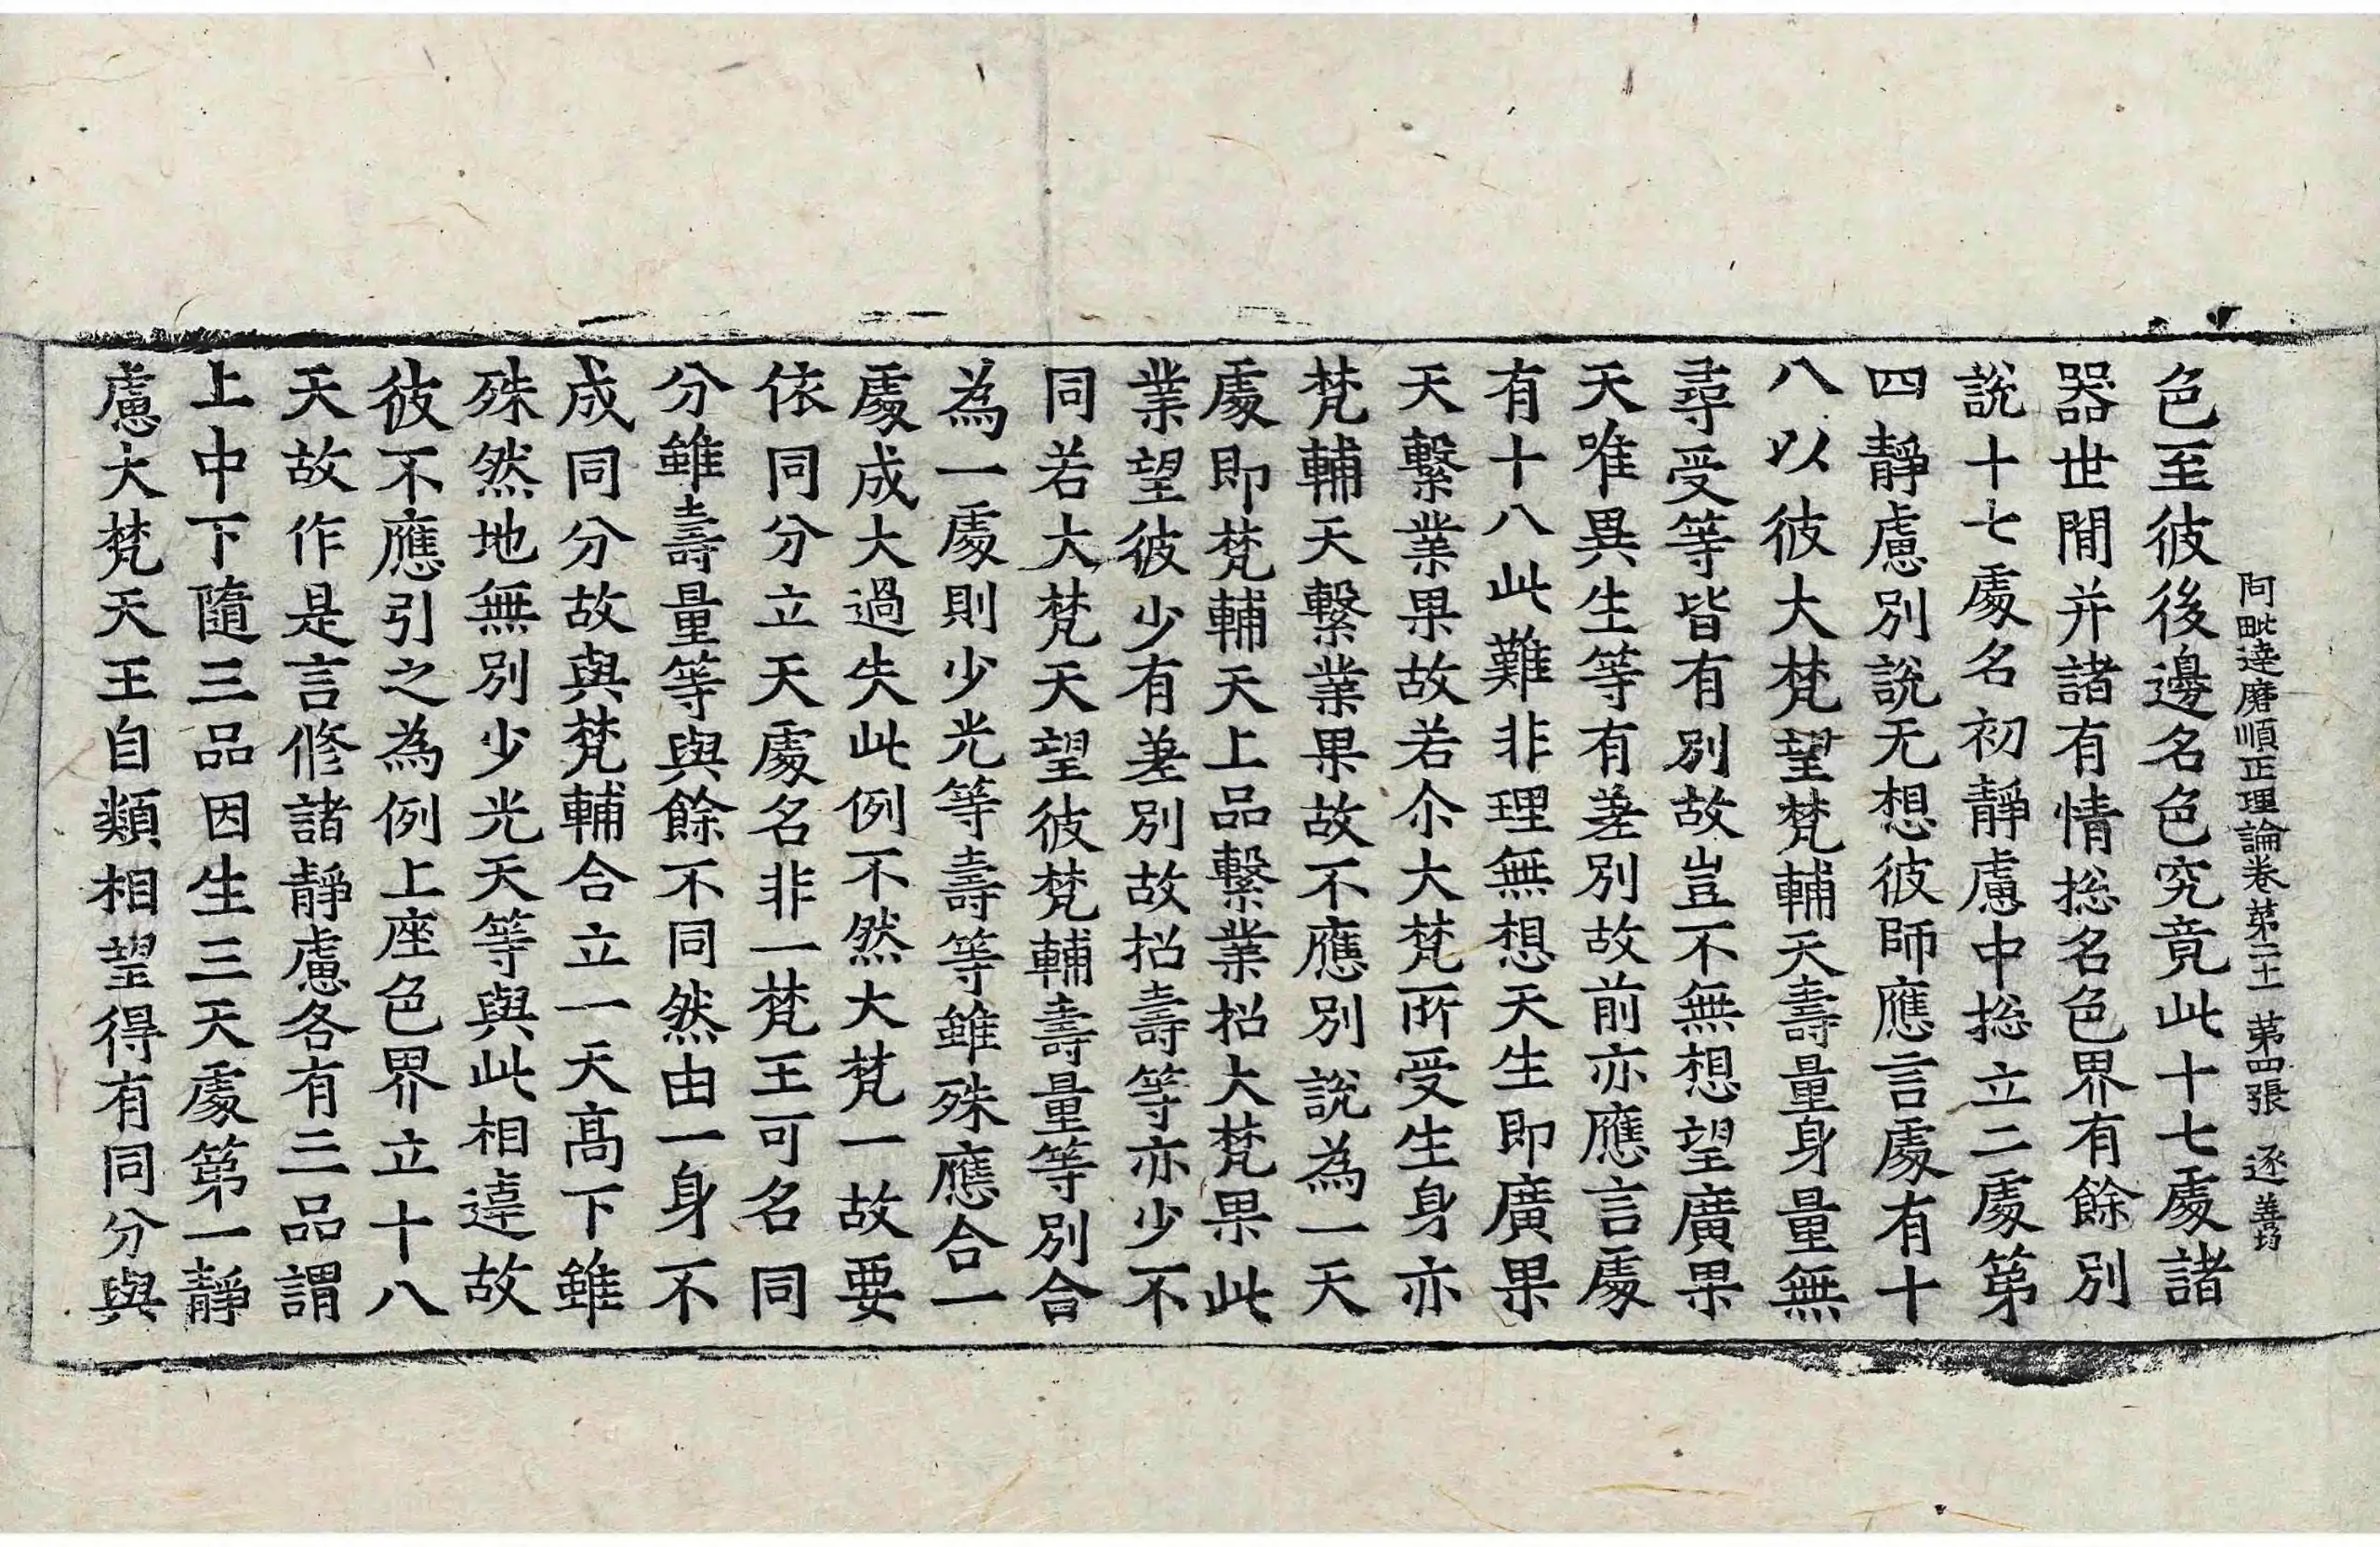 阿毗達磨順正理論卷第二十一 第四張 逐 善均
色至彼後邊名色究竟此十七處諸
器世間并諸有情捴名色界有餘別
說十七處名初靜慮中捴立二處第
四靜慮別說无想彼師應言處有十
八以彼大梵望梵輔天壽量身量無
尋受等皆有別故豈不無想望廣果
天唯異生等有差別故前亦應言處
有十八此難非理無想天生即廣果
天繫業果故若尒大梵所受生身亦
梵輔天繫業果故不應別說為一天
處即梵輔天上品繫業招大梵果此
業望彼少有差別故招壽等亦少不
同若大梵天望彼梵輔壽量等別合
為一處則少光等壽等雖殊應合一
處成大過失此例不然大梵一故要
依同分立天處名非一梵王可名同
分雖壽量等與餘不同然由一身不
成同分故與梵輔合立一天高下雖
殊然地無別少光天等與此相違故
彼不應引之為例上座色界立十八
天故作是言修諸靜慮各有三品謂
上中下隨三品因生三天處第一靜
慮大梵天王自類相望得有同分與